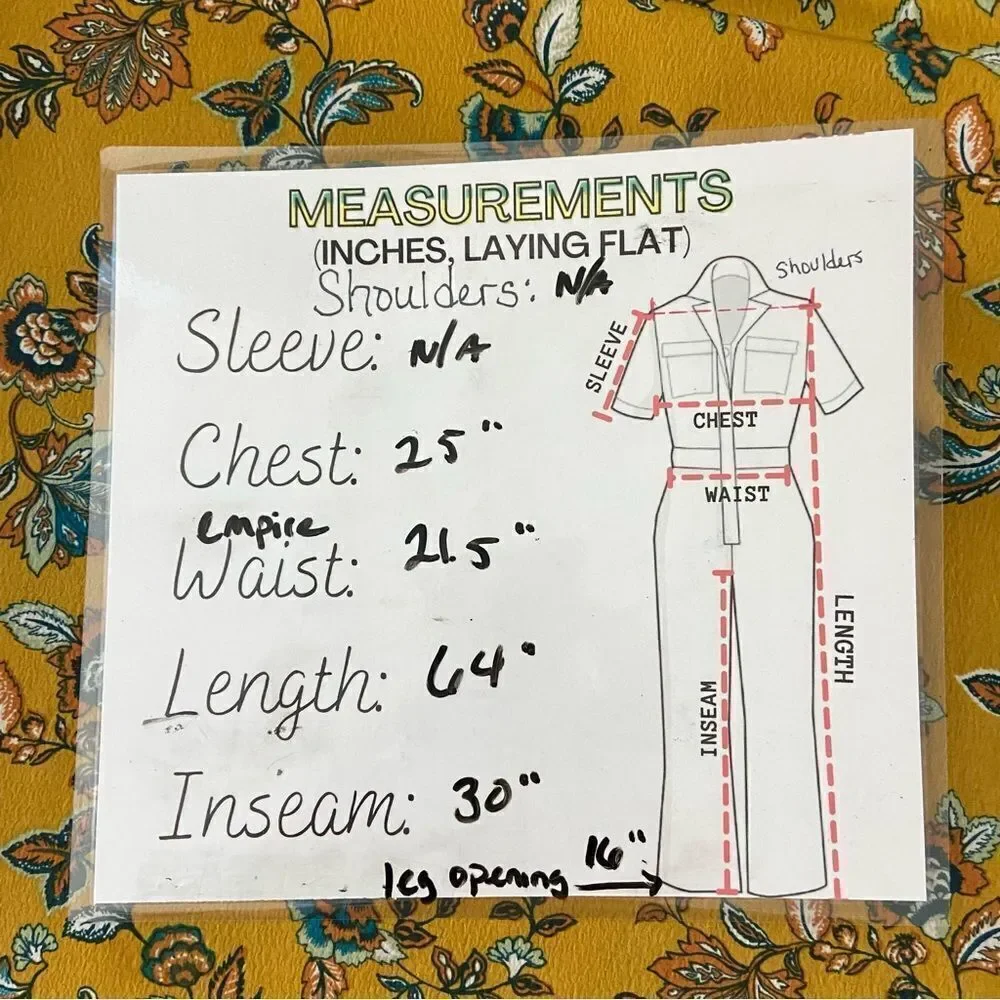 MEASUREMENTS
(INCHES, LAYING FLAT)
Shoulders: N/A
Sleeve: N/A
Chest: 25"
empire
Waist: 21.5"
Length: 64"
Inseam: 30"
leg opening 16"
Shoulders
SLEEVE
CHEST
WAIST
LENGTH
INSEAM